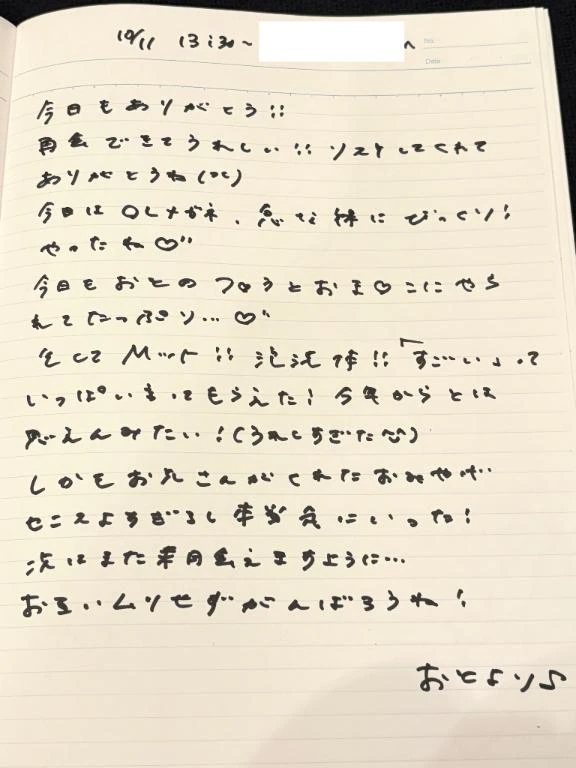 10/11 13:30~ へ
No.
Date
今日もありがとう!!
再会できてうれしい!! リストしてくれて
ありがとうね
今日はOLメガネ、急な
やったね♡"
今日もおとのフェラとおま♡こにやら
れてたっぷり…♡"
そしてMット!! !!「すごい」って
いっぱい言ってもらえた! 今年からとは
思えんみたい!(うれしすぎた
しかもお兄さんがくれたおみやげ
センスよすぎるし本当気にいった!
次はまた来月会えますように…
お互いムリせずがんばろうね!
おとより♪